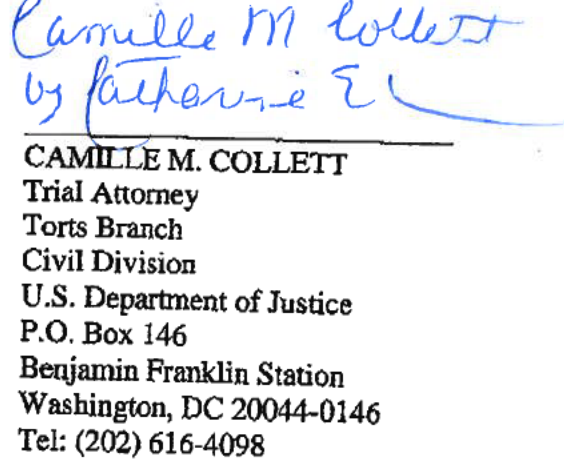 Camille M Collett
by Catherine E
CAMILLE M. COLLETT
Trial Attorney
Torts Branch
Civil Division
U.S. Department of Justice
P.O. Box 146
Benjamin Franklin Station
Washington, DC 20044-0146
Tel: (202) 616-4098